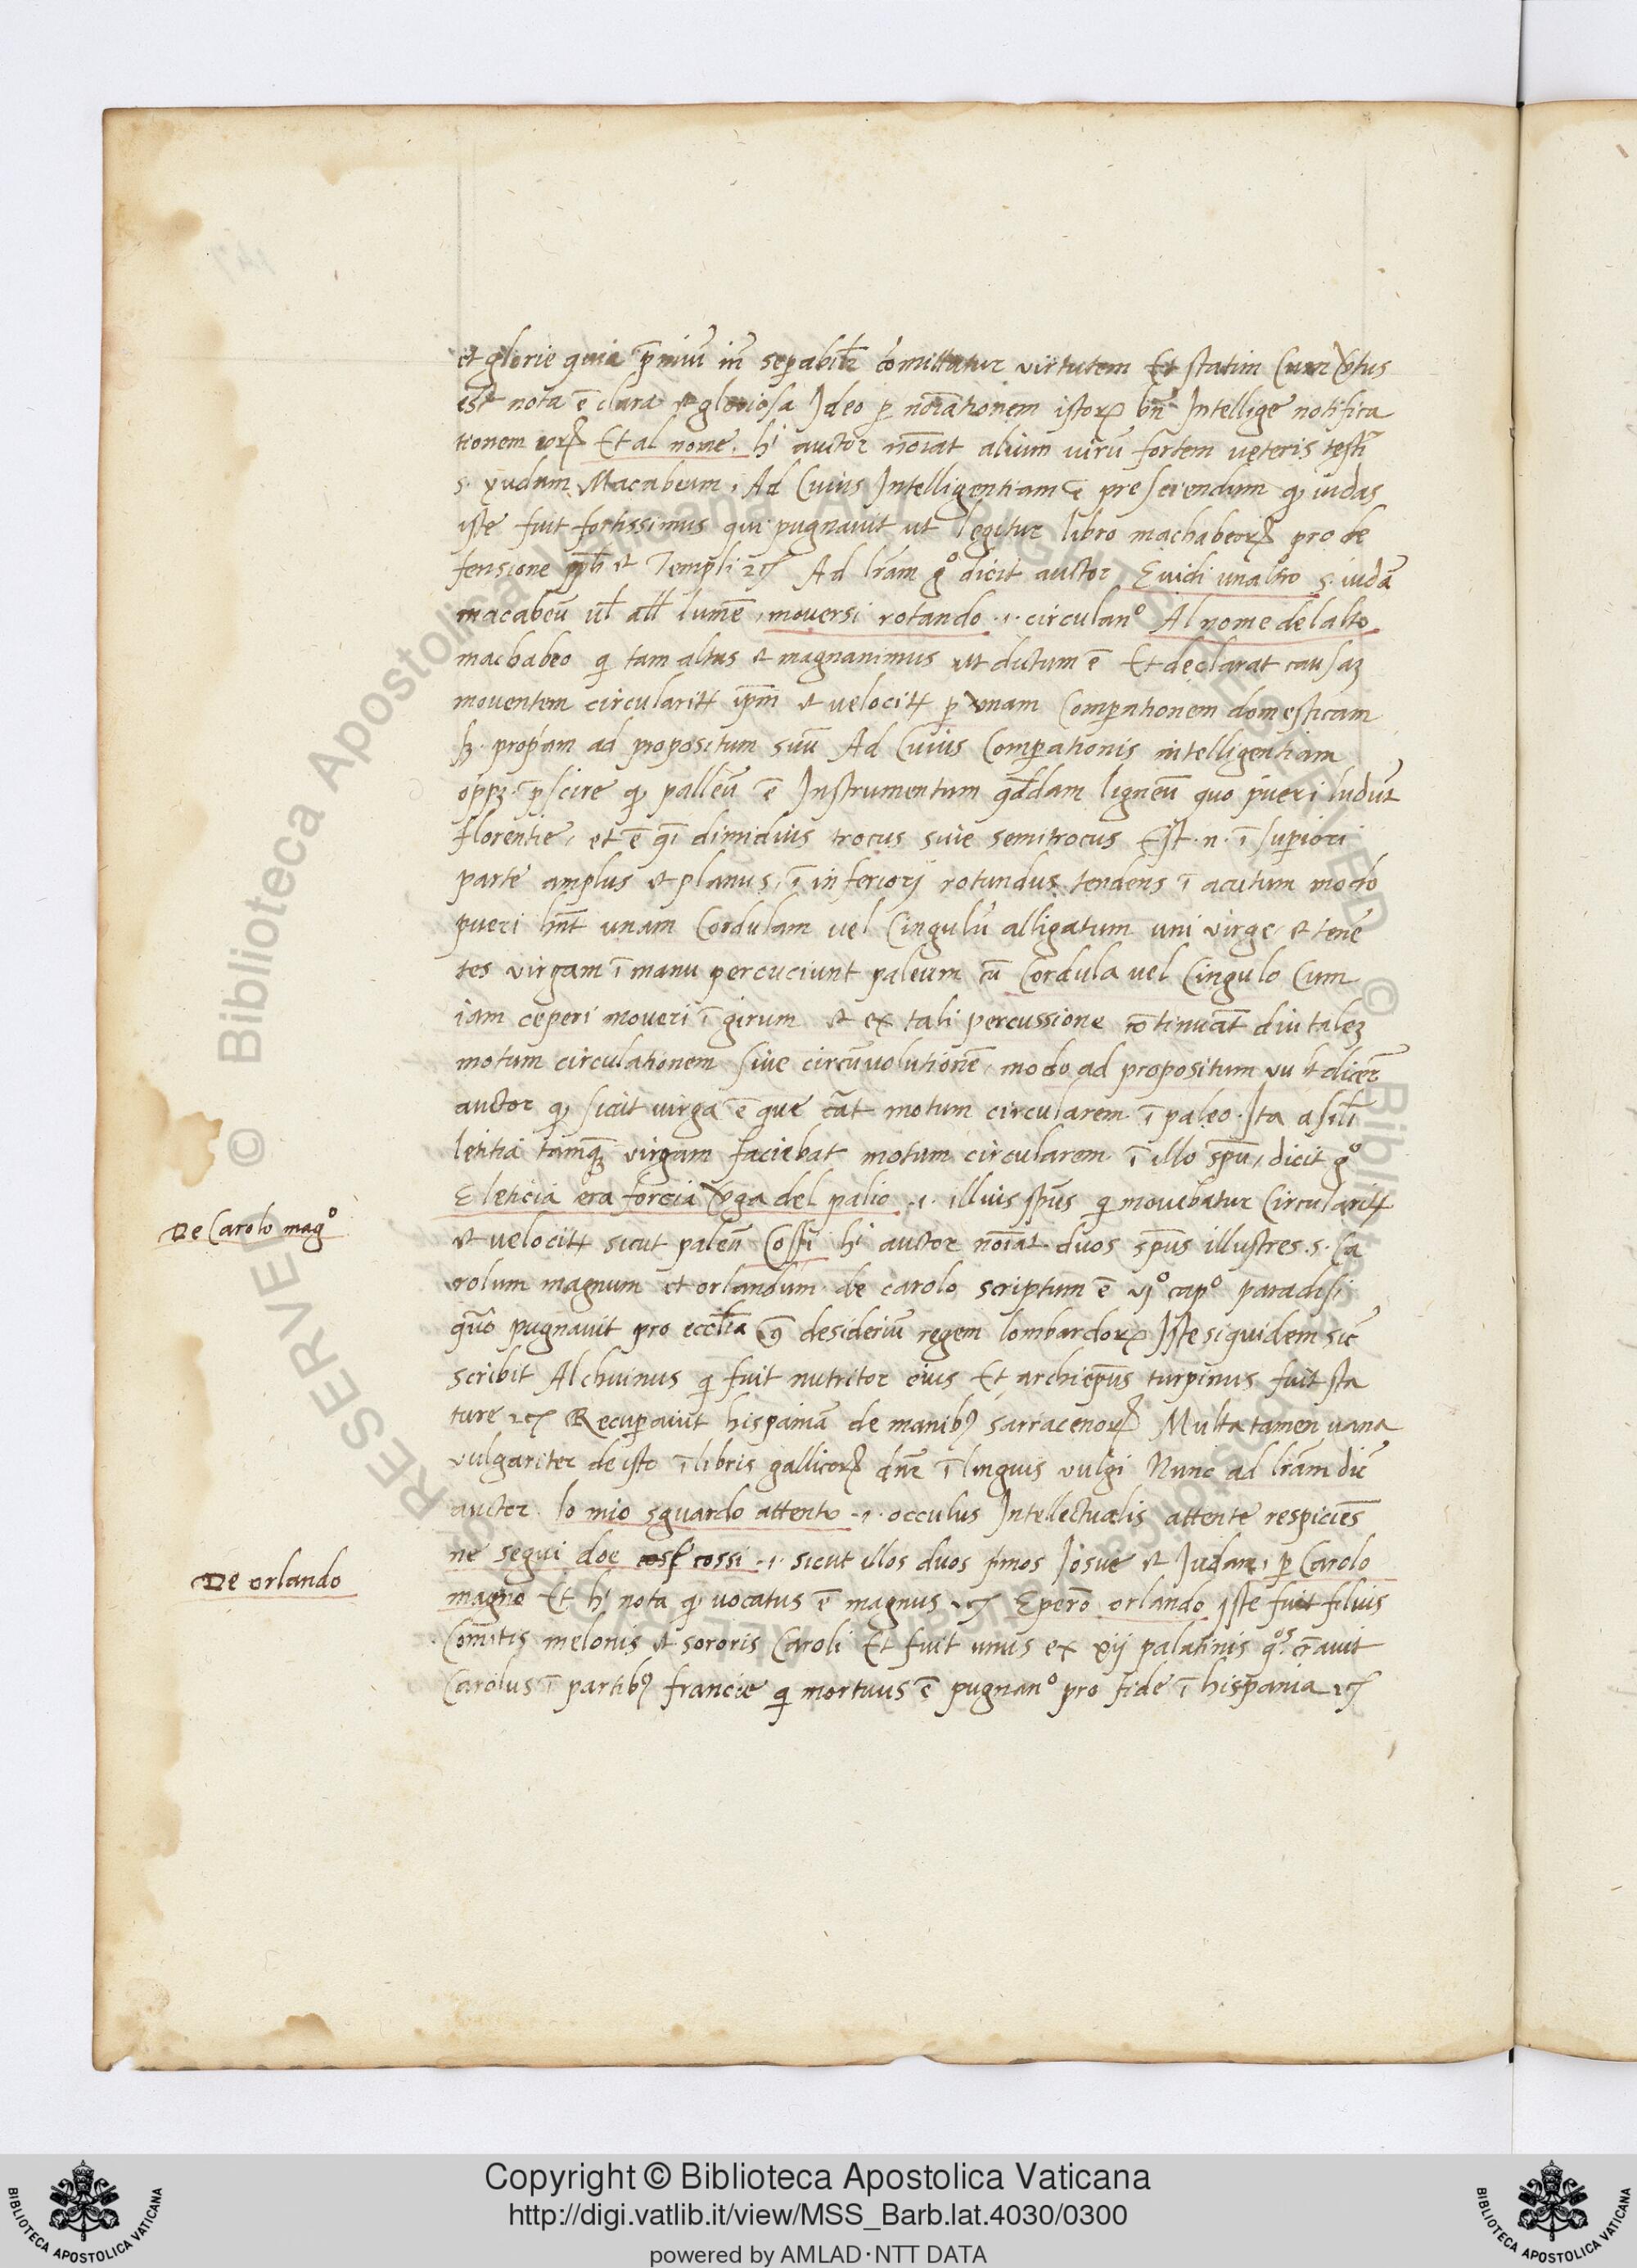 et glorie quia p̄miū in sepabilr̄ comittatur virtutem Et statim Cum v̄tus
est nota ē clara et gloriosa Ideo ꝑ noīationem istoꝝ bn̄ Intellige notifica
tionem eoꝝ Et al nome. hⁱ auctor noīat alium virū fortem veteris test̄i
s. yudam Macabeum, Ad Cuius Intelligentiam ē presciendum ꝙ iudas
iste fuit fortissimus qui pugnauit ut legitur libro machabeoꝝ pro de
fensione et Templi ⁊c̃ Ad lr̄am gº dicit auctor Euidi unaltro s. iudā
macabeū ul̄ all̄ lumē, mouersi rotando .i. circulanº Al nome delalto
machabeo q̄ tam altus et magnanimus ut dictum ē Et declarat causaȝ
mouentem circularitꝭ ip̄m et velocitꝭ ꝑ vnam Comꝑationem domesticam
sȝ. prop̄am ad propositum suū Ad Cuius Comꝑationis intelligentiam
oppȝ. p̄scire ꝙ palleū ē Instrumentum qd̄dam ligneū quo pueri ludūt
florentie, et ē q̄i dimidius trocus siue semitrocus Est .n. ī supiori
parte amplus et planus, ī inferiorj rotundus tendens ī acutum modo
pueri hn̄t unam Cordulam uel Cingulū alligatum uni virge, et tenē
tes virgam ī manu percuciunt paleum cū Cordula uel Cingulo Cum
iam ceperi moueri ī girum et ex tali percussione cōtinuāt diu taleȝ
motum circulationem siue circūuolutionē, modo ad propositum vult dicer̄
auctor ꝙ sicut virga ē que cāt motum circularem ī paleo. Ita a sil̄i
letitia tamqȝ virgam faciebat motum circularem ī illo spū, dicit gº
Eleticia era forcia v̄ga del palio .i. illius sp̄us q̄ mouebatur Circularitꝭ
et velocitꝭ sicut paleū Cossi hⁱ auctor noīat duos sp̄us illustres .s. Ca
rolum magnum et orlandum de carolo scriptum ē vjº capº paradisi
quō pugnauit pro eccl̄ia ꝯ desideriū regem lombardoꝝ Iste siquidem sic̄
scribit Alchuinus q̄ fuit nutritor eius Et archiep̄us turpinus fuit sta
ture ⁊c̃ Recuꝑauit hispaniā de manibꝰ sarracenoꝝ Multa tamen uana
vulgariter de isto ī libris gallicoꝝ dn̄r ī linguis vulgi Nunc ad lr̄am dic̄
auctor. lo mio sguardo attento .i. occulus Intellectualis attente respiciēs
ne segui doe cossi .i. sicut illos duos p̄mos Iosue et Iudam, ꝑ Carolo
magno Et hⁱ nota ꝙ uocatus ē magnus ⁊c̃ Eperō orlando iste fuit filius
Comitis melonis et sororis Caroli Et fuit unus ex xij palatinis qºs cr̄auit
Carolus ī partibꝰ francie q̄ mortuus ē pugnanº pro fide ī hispania ⁊c̃
De Carolo magº
De orlando
© Biblioteca Apostolica Vaticana
Copyright © Biblioteca Apostolica Vaticana
http://digi.vatlib.it/view/MSS_Barb.lat.4030/0300
powered by AMLAD·NTT DATA
BIBLIOTECA APOSTOLICA VATICANA
BIBLIOTECA APOSTOLICA VATICANA